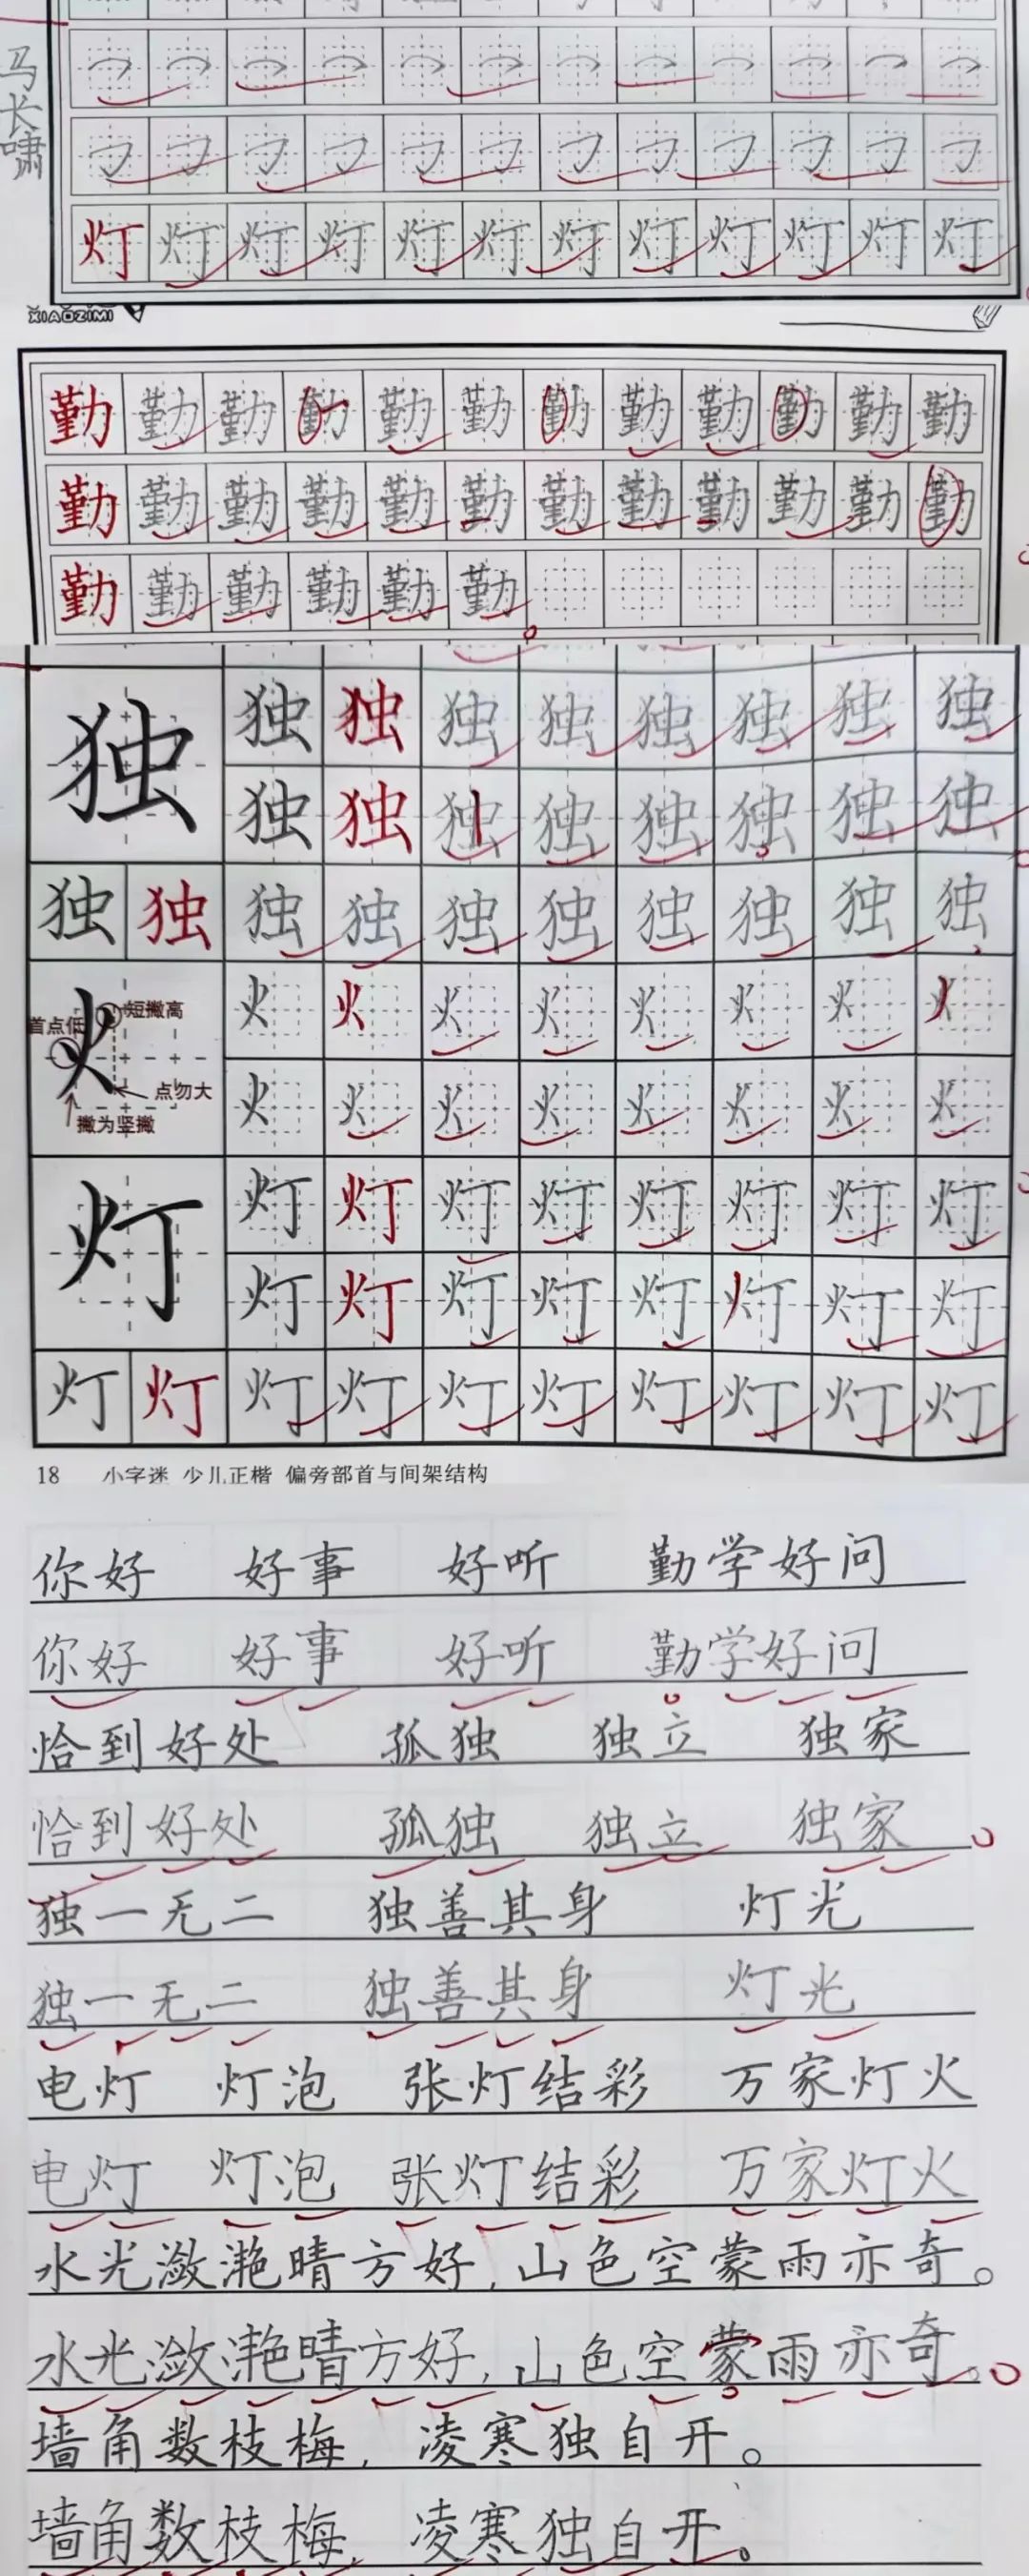 马长啸
灯 灯 灯 灯 灯 灯 灯 灯 灯 灯 灯 灯
XIAOZIMI
勤 勤 勤 勤 勤 勤 勤 勤 勤 勤 勤 勤
勤 勤 勤 勤 勤 勤 勤 勤 勤 勤 勤 勤
勤 勤 勤 勤 勤 勤
独 独 独 独 独 独 独 独 独
独 独 独 独 独 独 独 独
独 独 独 独 独 独 独 独 独 独
火 首点低 短撇高 点勿大 撇为竖撇
火 火 火 火 火 火 火 火
火 火 火 火 火 火 火 火
灯 灯 灯 灯 灯 灯 灯 灯 灯
灯 灯 灯 灯 灯 灯 灯 灯
灯 灯 灯 灯 灯 灯 灯 灯 灯 灯
18 小字迷 少儿正楷 偏旁部首与间架结构
你好 好事 好听 勤学好问
你好 好事 好听 勤学好问
恰到好处 孤独 独立 独家
恰到好处 孤独 独立 独家
独一无二 独善其身 灯光
独一无二 独善其身 灯光
电灯 灯泡 张灯结彩 万家灯火
电灯 灯泡 张灯结彩 万家灯火
水光潋滟晴方好,山色空蒙雨亦奇。
水光潋滟晴方好,山色空蒙雨亦奇。
墙角数枝梅,凌寒独自开。
墙角数枝梅,凌寒独自开。